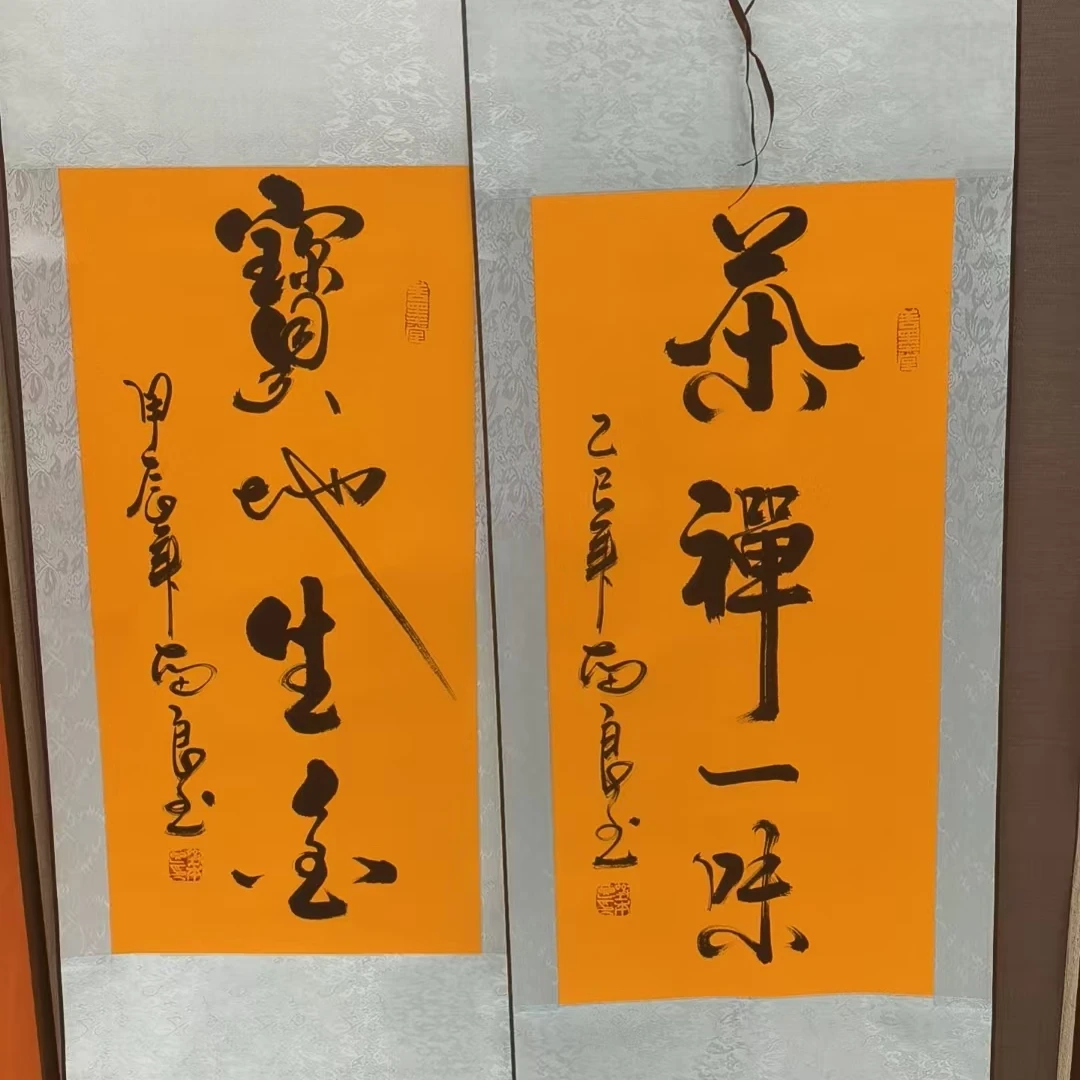 茶禪一味
乙巳年
良玉
寶地生金
甲辰年
良玉